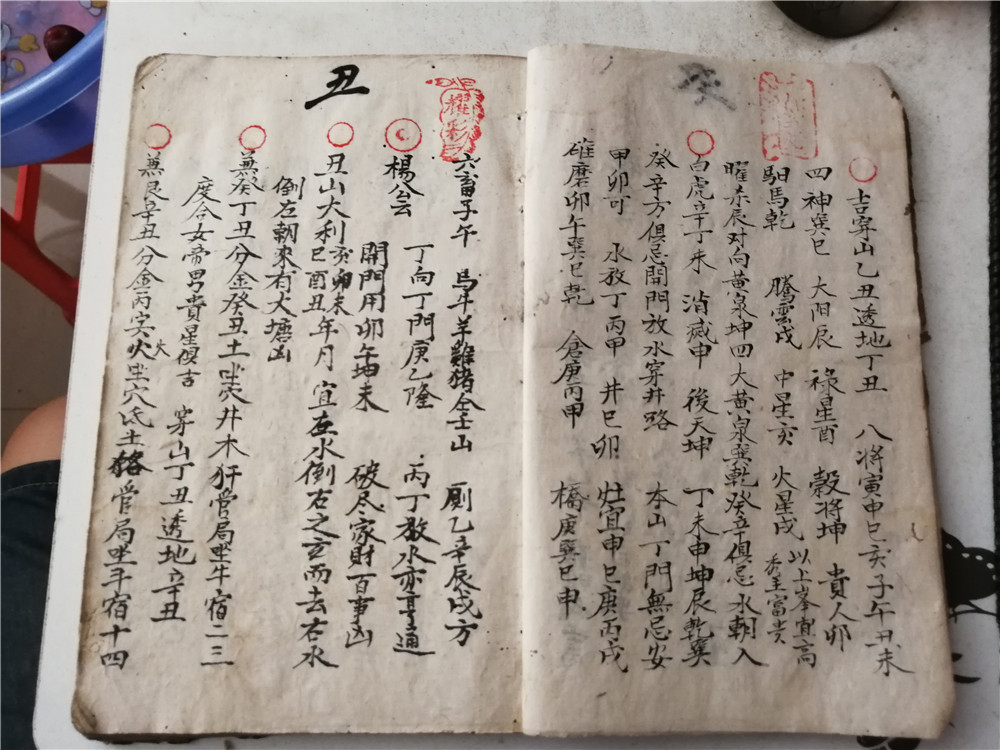 癸
吉穿山乙丑透地丁丑 八将寅申巳亥子午丑未
四神巽巳 太阳辰 祿星酉 穀将坤 貴人卯
馹馬乾 騰雲戌 中星亥 火星戌 以上峯宜高
秀主富贵
曜杀辰对向黄泉坤四大黄泉並乾癸辛俱忌水朝入
白虎辛丁朱 消滅申 後天坤 丁未申坤辰乾巽
癸辛方俱忌開門放水穿井路 本山丁門無忌安
甲卯可 水放丁丙甲 井巳卯 灶宜申巳庚丙戌
碓磨卯午巽巳乾 倉庚丙甲 橋庚巽巳申
耀彩
六畜子午 馬牛羊雞猪全壬山 厠乙辛辰戌方
楊公云 丁向丁門庚乙隆 丙丁放水亦亨通
開門用卯午坤未 破尽家財百事凶
丑
丑山大利亥卯未巳酉丑年月 宜左水倒右之玄而去右水
倒左朝來有大塘凶
兼癸丁丑分金癸丑土坐穴井木犴管局坐牛宿二三
度合女帝男貴星俱吉 穿山丁丑透地辛丑
兼艮辛丑分金丙宾大火坐穴氐土貉管局坐斗宿十四